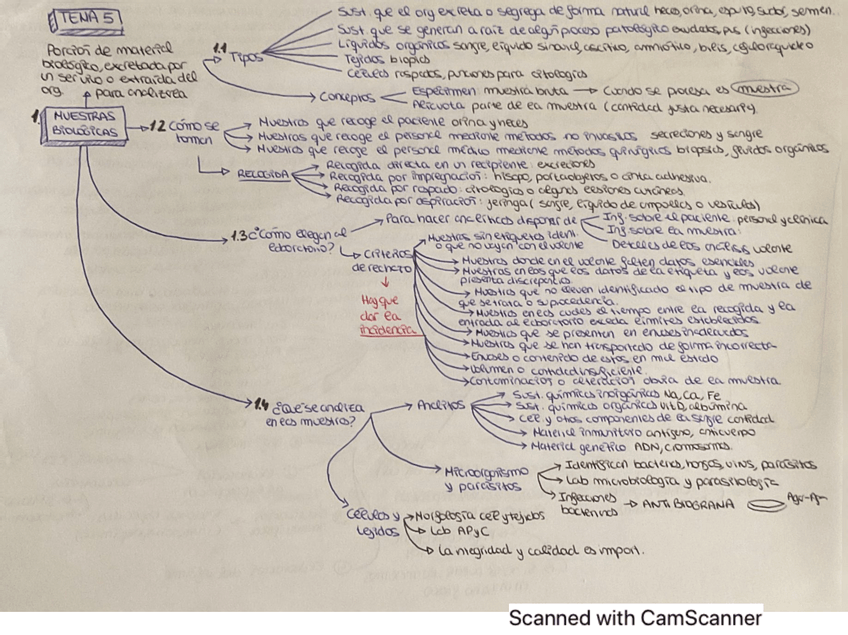 TEMA 5
Porción de material
biológico, excretada por
un ser vivo o extraida del
org. para analizarla
1. MUESTRAS
BIOLÓGICAS
1.1 Tipos
Sust. que el org excreta o segrega de forma natural heces, orina, esputo, sudor, semen...
Sust que se generan a raiz de algún proceso patológico exudados, pus (infecciones)
Líquidos orgánicos sangre, líquido sinovial, ascítico, amniótico, bilis, cefalorraquideo
Tejidos biopsias
Células raspados, punciones para citologias
Conceptos
Espécimen muestra bruta → Cuando se procesa es muestra
Alícuota parte de la muestra (cantidad justa necesaria).
1.2 Cómo se
toman
Muestras que recoge el paciente orina y heces
Muestras que recoge el personal mediante métodos no invasivos secreciones y sangre
Muestras que recoge el personal médico mediante métodos quirúrgicos biopsias, fluidos orgánicos
RECOGIDA
Recogida directa en un recipiente excreciones
Recogida por impregnación: hisopo, portaobjetos o cinta adhesiva.
Recogida por raspado: citologias o algunas lesiones cutáneas.
Recogida por aspiración: jeringa (sangre, líquido de ampollas o vesículas)
1.3 ¿Cómo llegan al
laboratorio?
Para hacer analíticas disponer de
Inf. sobre el paciente: personal y clínica
Inf. sobre la muestra:
Detalles de los análisis volante
Criterios
de rechazo
Hay que
dar la
incidencia
Muestras sin etiqueta ident.
o que no vayan con el volante
Muestras donde en el volante falten datos esenciales
Muestras en las que los datos de la etiqueta y los volante
presenta discrepancias
Muestras que no lleven identificado el tipo de muestra de
que se trata o su procedencia.
Muestras en las cuales el tiempo entre la recogida y la
entrada al laboratorio exceda límites establecidos
Muestras que se presenten en envases inadecuados
Muestras que se han transportado de forma incorrecta
Envases o contenido de estos en mal estado
Volumen o cantidad insuficiente.
Contaminación o alteración obvia de la muestra
1.4 ¿Qué se analiza
en las muestras?
Analitos
Sust. químicas inorgánicas Na, Ca, Fe
Sust. químicas orgánicas vit D, albúmina
Cel. y otros componentes de la sangre cantidad
Material inmunitario antígeno, anticuerpo
Material genético ADN, cromosomas.
Microorganismo
y parásitos
Identifican bacterias, hongos, virus, parásitos
Lab microbiología y parasitología
Infecciones
bacterianas → ANTIBIOGRAMA
Células y
tejidos
Morfología cel y tejidos
Lab AP y C
La integridad y calidad es import.
Scanned with CamScanner